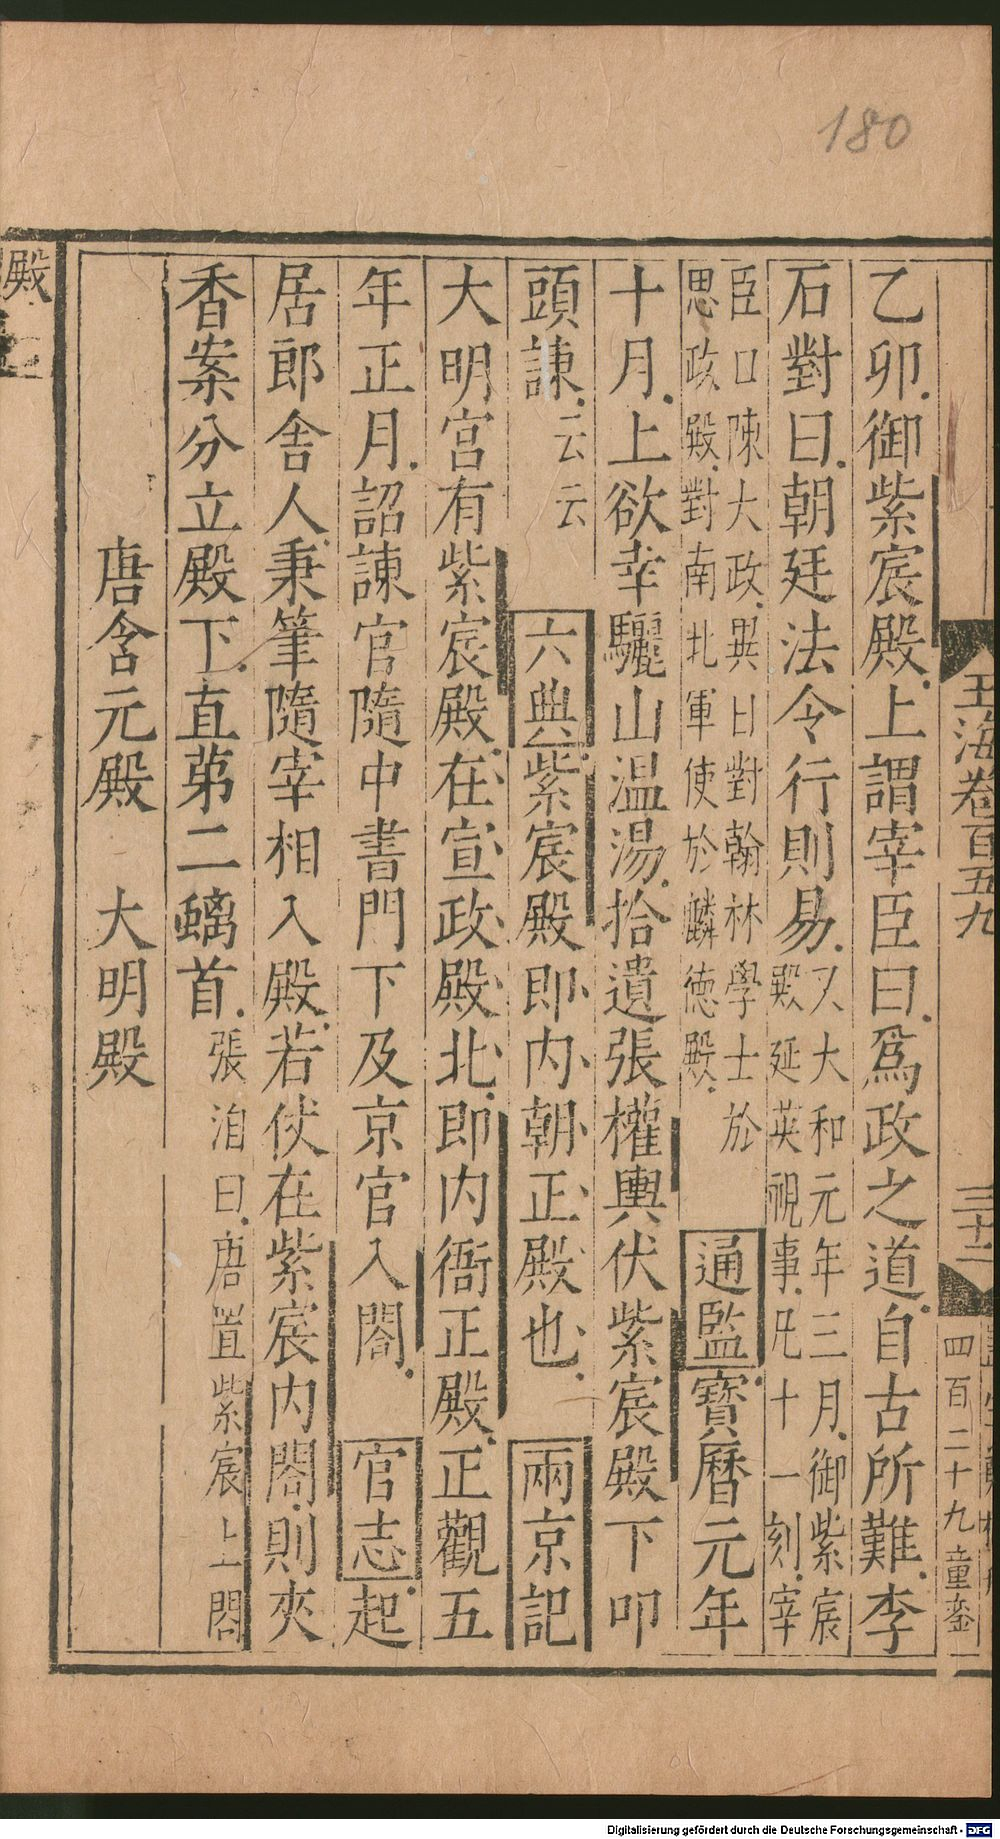 180
玉海卷百五九
三十二
四百二十九童銮
乙卯御紫宸殿上謂宰臣曰爲政之道自古所難李
石對曰朝廷法令行則易
又大和元年三月御紫宸
殿延英視事凡十一刻宰
臣口陳大政異日對翰林學士於
思政殿對南北軍使於麟德殿
通監寶曆元年
十月上欲幸驪山温湯拾遺張權輿伏紫宸殿下叩
頭諫云云
六典紫宸殿即内朝正殿也
兩京記
大明宫有紫宸殿在宣政殿北即内衙正殿正觀五
年正月詔諫官隨中書門下及京官入閤
官志起
居郎舍人秉筆隨宰相入殿若仗在紫宸内閤則夾
香案分立殿下直苐二螭首
張洎曰唐置紫宸上閤
唐含元殿 大明殿
殿
Digitalisierung gefördert durch die Deutsche Forschungsgemeinschaft - DFG